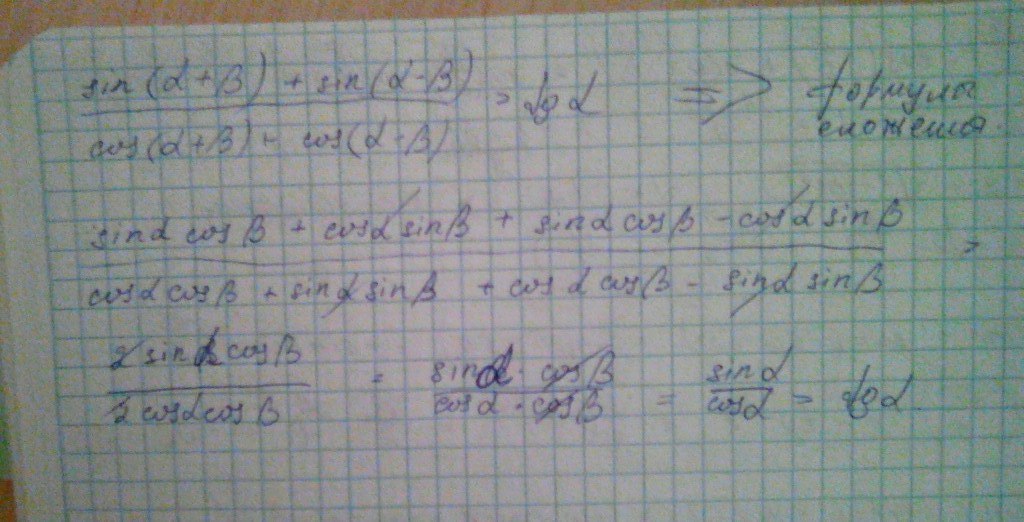 sin(α+β) + sin(α-β) / cos(α+β) - cos(α-β) = tgα => формулы сложения.
sinα cosβ + cosα sinβ + sinα cosβ - cosα sinβ / cosα cosβ + sinα sinβ + cosα cosβ - sinα sinβ =
2 sinα cosβ / 2 cosα cosβ = sinα · cosβ / cosα · cosβ = sinα / cosα = tgα.